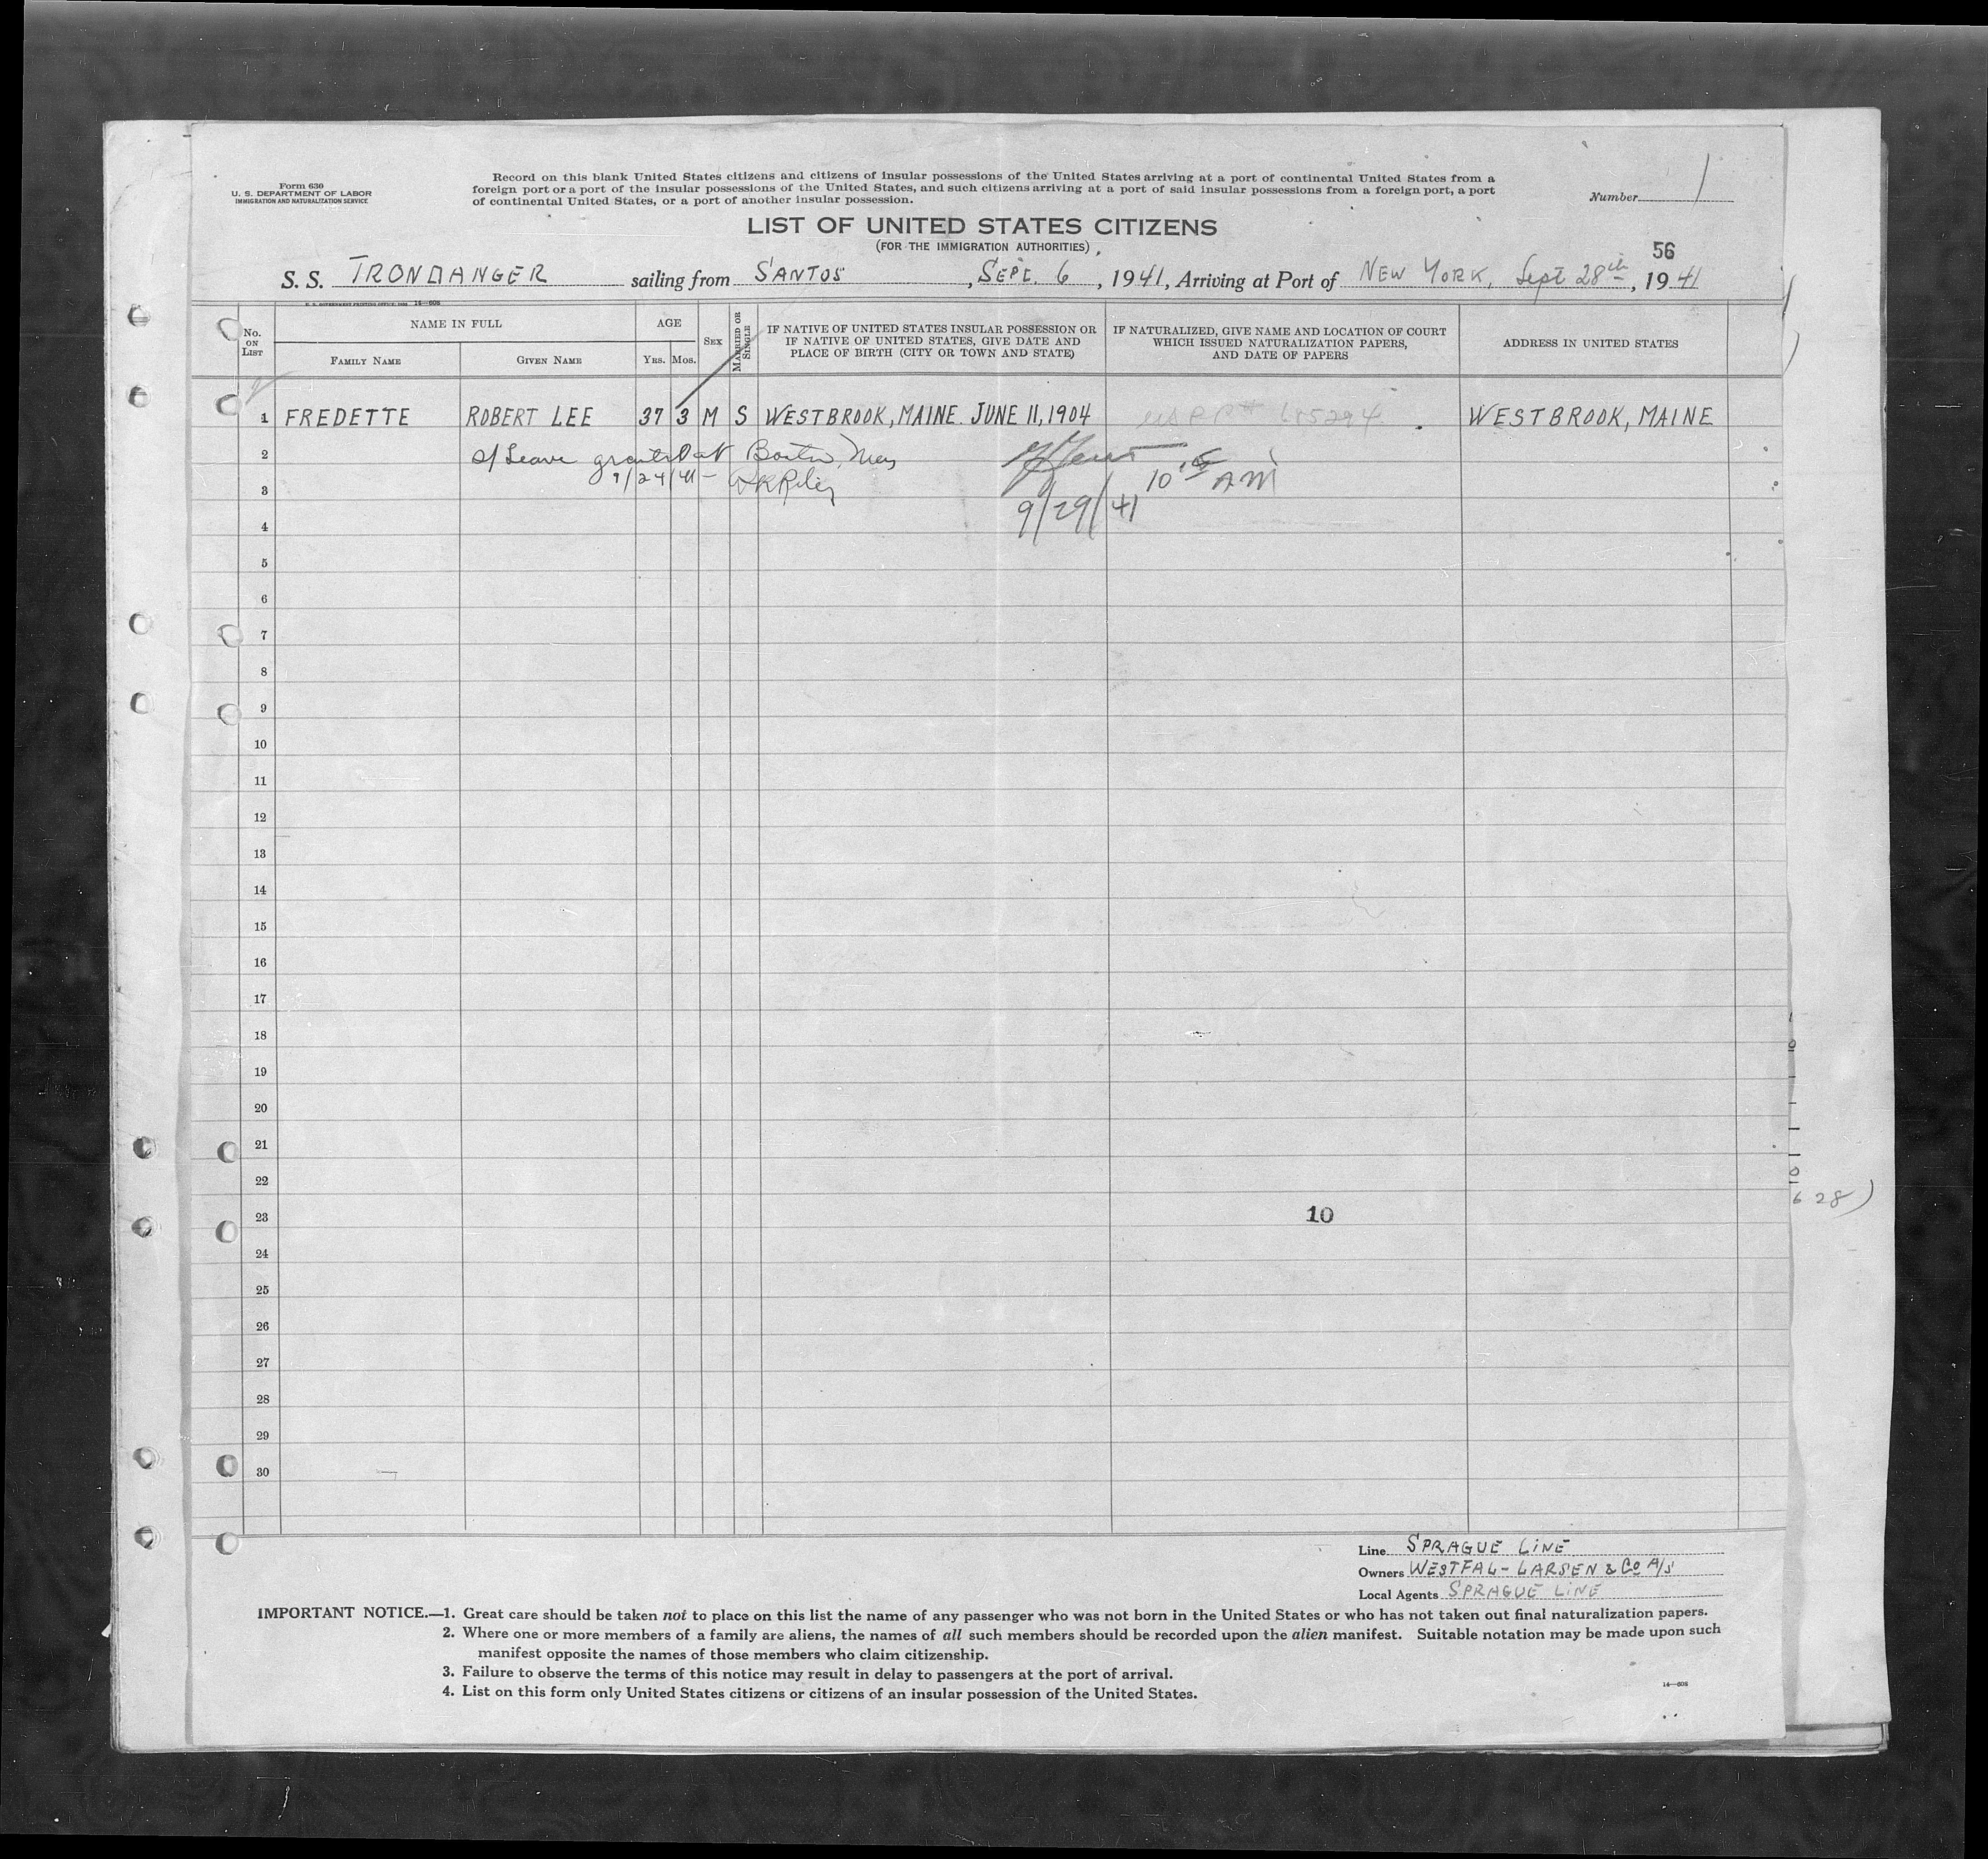 Form 630
U. S. DEPARTMENT OF LABOR
IMMIGRATION AND NATURALIZATION SERVICE
Record on this blank United States citizens and citizens of insular possessions of the United States arriving at a port of continental United States from a
foreign port or a port of the insular possessions of the United States, and such citizens arriving at a port of said insular possessions from a foreign port, a port
of continental United States, or a port of another insular possession.
Number 1
LIST OF UNITED STATES CITIZENS
(FOR THE IMMIGRATION AUTHORITIES)
56
S. S. TRONDANGER sailing from SANTOS, SEPT. 6, 1941, Arriving at Port of NEW YORK, Sept 28th, 1941
U. S. GOVERNMENT PRINTING OFFICE 14—608
No. ON LIST
NAME IN FULL
FAMILY NAME
GIVEN NAME
AGE
YRS. MOS.
SEX
MARRIED OR SINGLE
IF NATIVE OF UNITED STATES INSULAR POSSESSION OR
IF NATIVE OF UNITED STATES, GIVE DATE AND
PLACE OF BIRTH (CITY OR TOWN AND STATE)
IF NATURALIZED, GIVE NAME AND LOCATION OF COURT
WHICH ISSUED NATURALIZATION PAPERS,
AND DATE OF PAPERS
ADDRESS IN UNITED STATES
1 FREDETTE ROBERT LEE 37 3 M S WESTBROOK, MAINE. JUNE 11, 1904 WESTBROOK, MAINE
2 S/Leave granted at Boston, Mass
9/24/41 —
10 15 AM
3
9/29/41
4
5
6
7
8
9
10
11
12
13
14
15
16
17
18
19
20
21
22
23 10
24
25
26
27
28
29
30
6 28)
Line SPRAGUE LINE
Owners WESTFAL-LARSEN & Co A/S
Local Agents SPRAGUE LINE
IMPORTANT NOTICE.—1. Great care should be taken not to place on this list the name of any passenger who was not born in the United States or who has not taken out final naturalization papers.
2. Where one or more members of a family are aliens, the names of all such members should be recorded upon the alien manifest. Suitable notation may be made upon such
manifest opposite the names of those members who claim citizenship.
3. Failure to observe the terms of this notice may result in delay to passengers at the port of arrival.
4. List on this form only United States citizens or citizens of an insular possession of the United States.
14—608